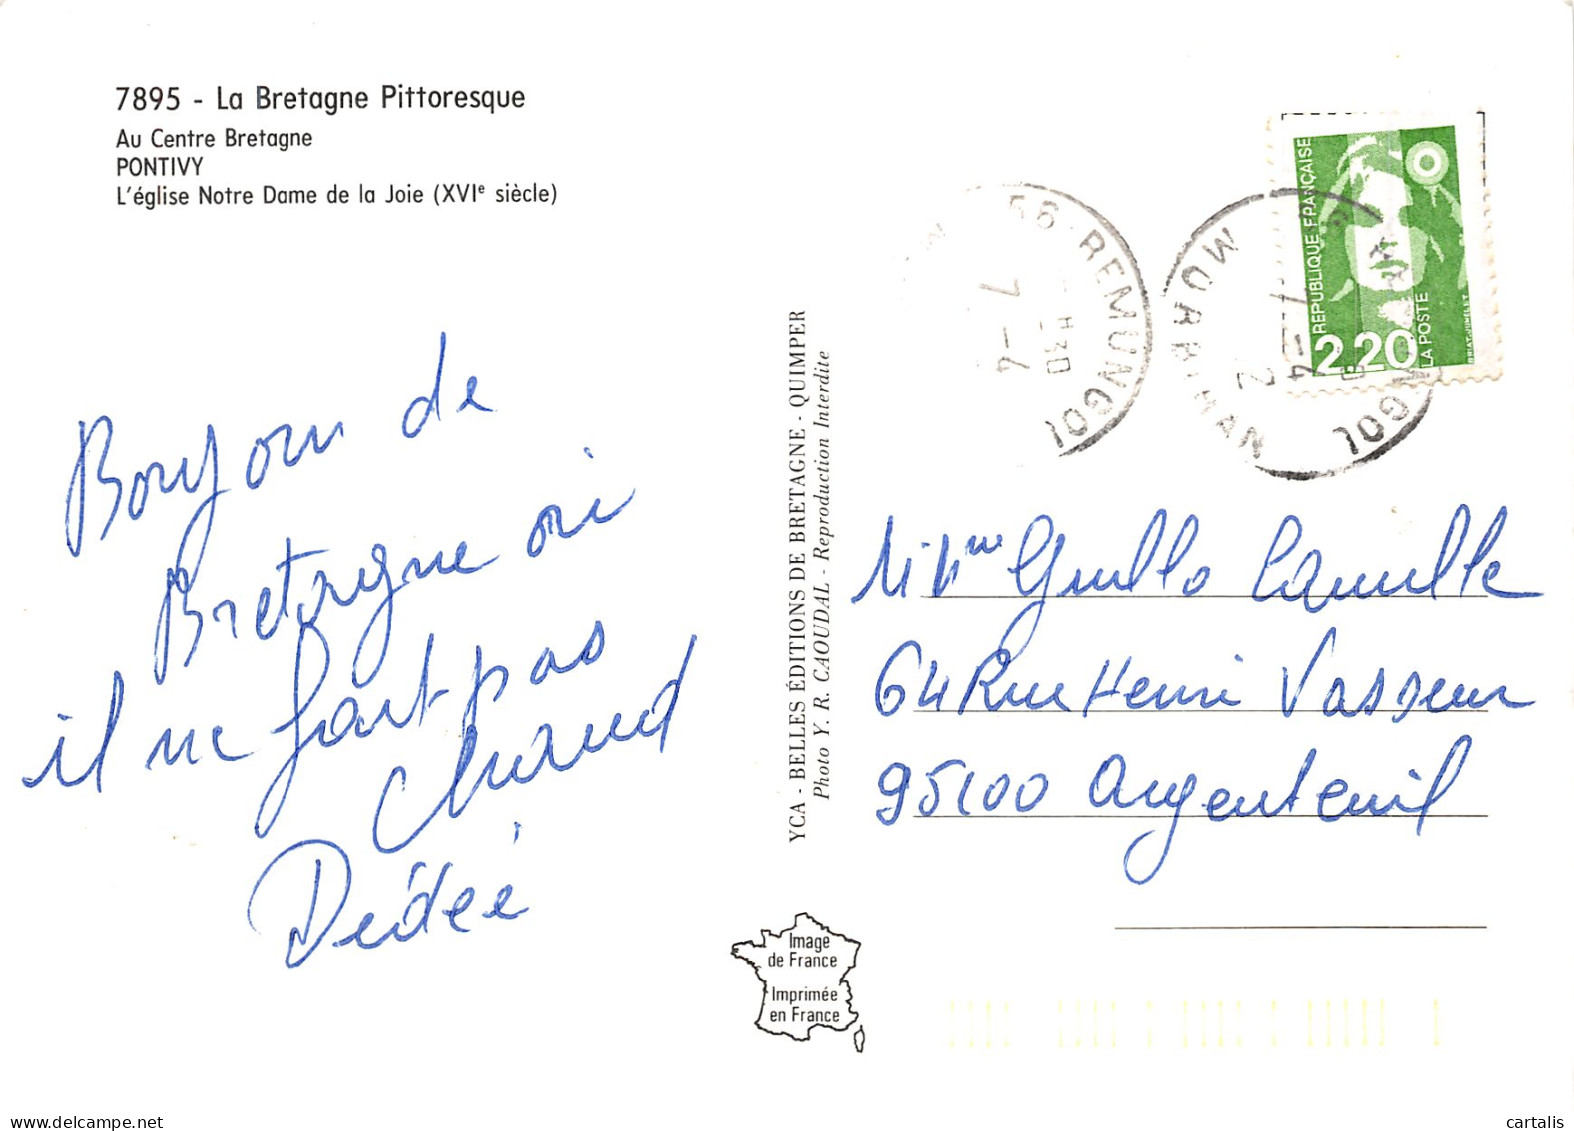 7895 - La Bretagne Pittoresque
Au Centre Bretagne
PONTIVY
L'église Notre Dame de la Joie (XVIe siècle)
Bonjour de
Bretagne où
il ne fait pas
chaud
Dédée
YCA - BELLES ÉDITIONS DE BRETAGNE - QUIMPER
Photo Y. R. CAOUDAL - Reproduction Interdite
56 REMUNGOL
7 - 4
MORBIHAN
7 - 4
REPUBLIQUE FRANÇAISE
2,20
LA POSTE
BRIAT-JUMELET
Guillo Camille
64 Rue Henri Vasseur
95100 Argenteuil
Image
de France
Imprimée
en France
www.delcampe.net
cartalis